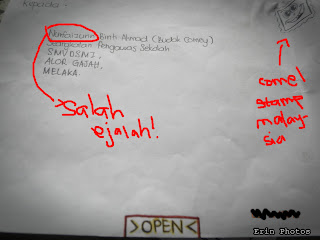 Kepada :
Norfaizurra Binti Ahmad (Budak Comey)
Jabatan Pengawas Sekolah
SMVDSMI,
ALOR GAJAH,
MELAKA.
salah
ejalah!
comel
stamp
malay-
sia
>OPEN<
Erin Photos